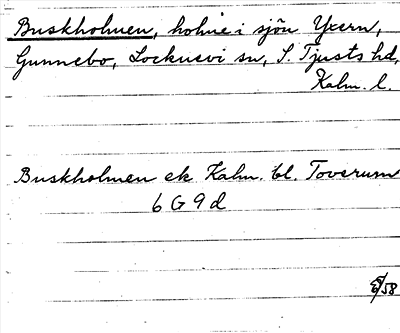 Buskholmen, holme i sjön Yxern,
Gunnebo, Locknevi sn, S. Tjusts hd,
Kalm. l.
Buskholmen ek. Kalm. bl. Toverum
6 G 9 d
58